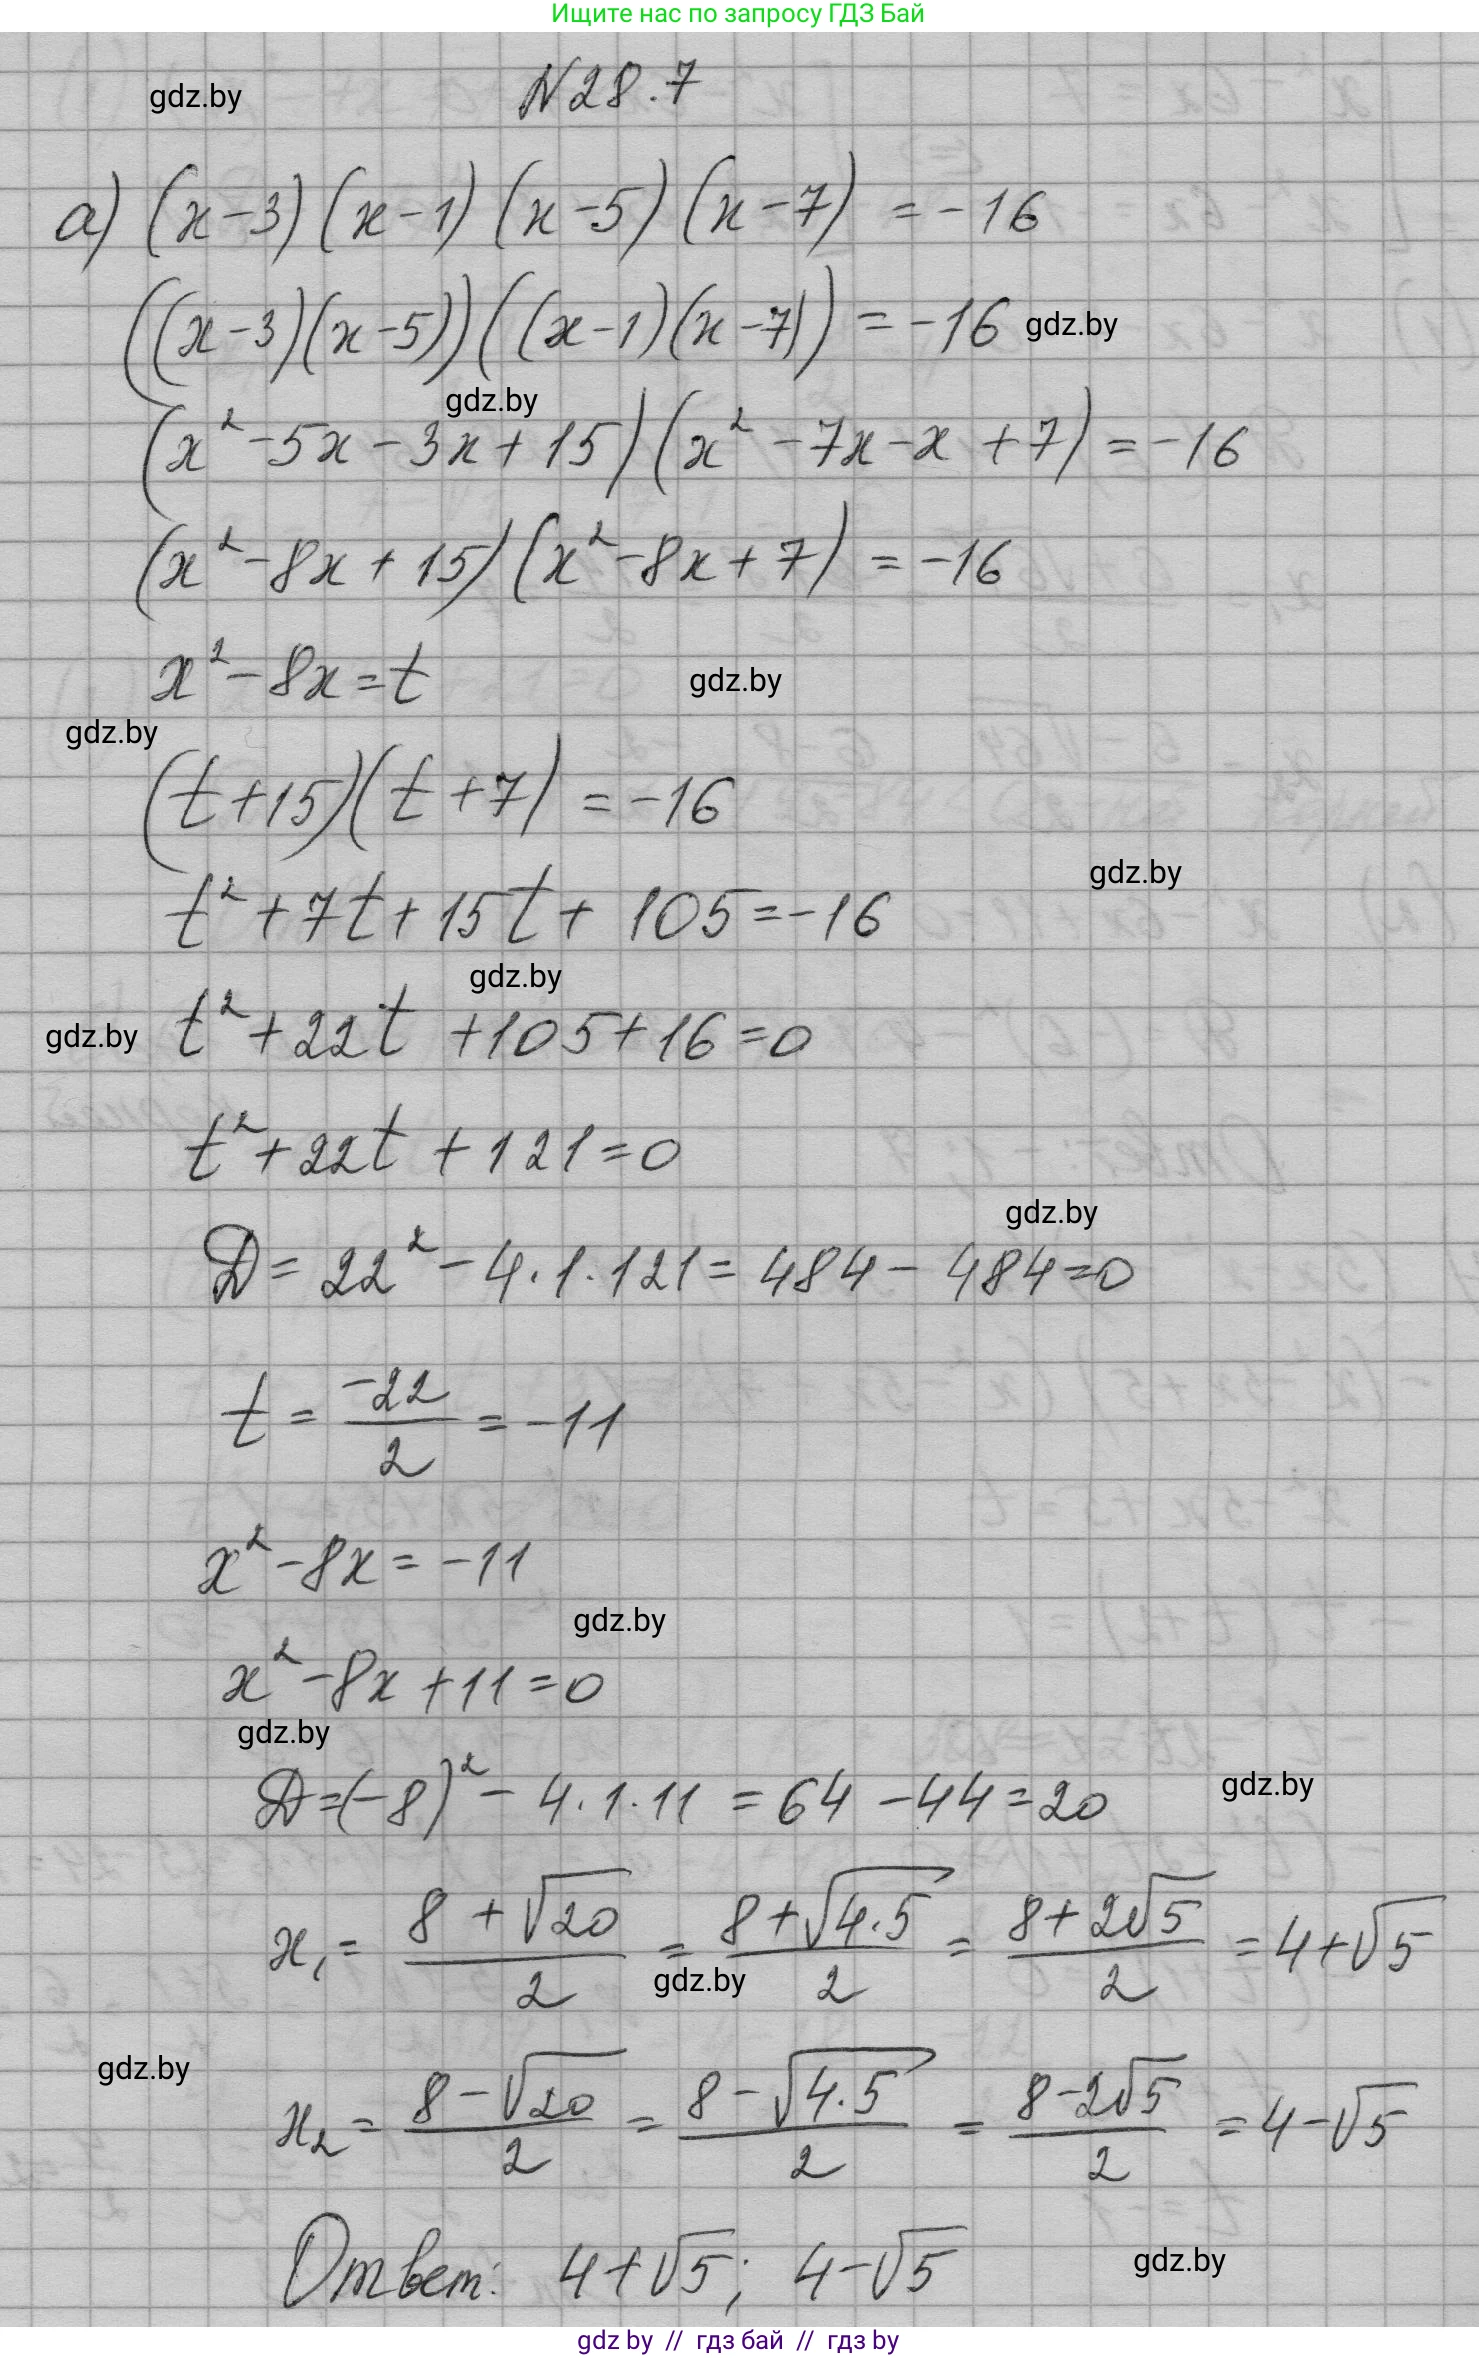 Ищите нас по запросу ГДЗ Бай
gdz.by
N28.7
а) (x-3)(x-1)(x-5)(x-7) = -16
((x-3)(x-5))((x-1)(x-7)) = -16 gdz.by
gdz.by
(x²-5x-3x+15)(x²-7x-x+7) = -16
(x²-8x+15)(x²-8x+7) = -16
x²-8x=t gdz.by
gdz.by
(t+15)(t+7) = -16
gdz.by
t²+7t+15t+105=-16
gdz.by
gdz.by t²+22t+105+16=0
t²+22t+121=0
gdz.by
D=22²-4·1·121=484-484=0
t = -22/2 = -11
x²-8x=-11
gdz.by
x²-8x+11=0
gdz.by
gdz.by
D=(-8)²-4·1·11=64-44=20
x₁ = (8+√20)/2 = (8+√4·5)/2 = (8+2√5)/2 = 4+√5
gdz.by
gdz.by
x₂ = (8-√20)/2 = (8-√4·5)/2 = (8-2√5)/2 = 4-√5
Ответ: 4+√5; 4-√5
gdz.by
gdz by // гдз бай // гдз by